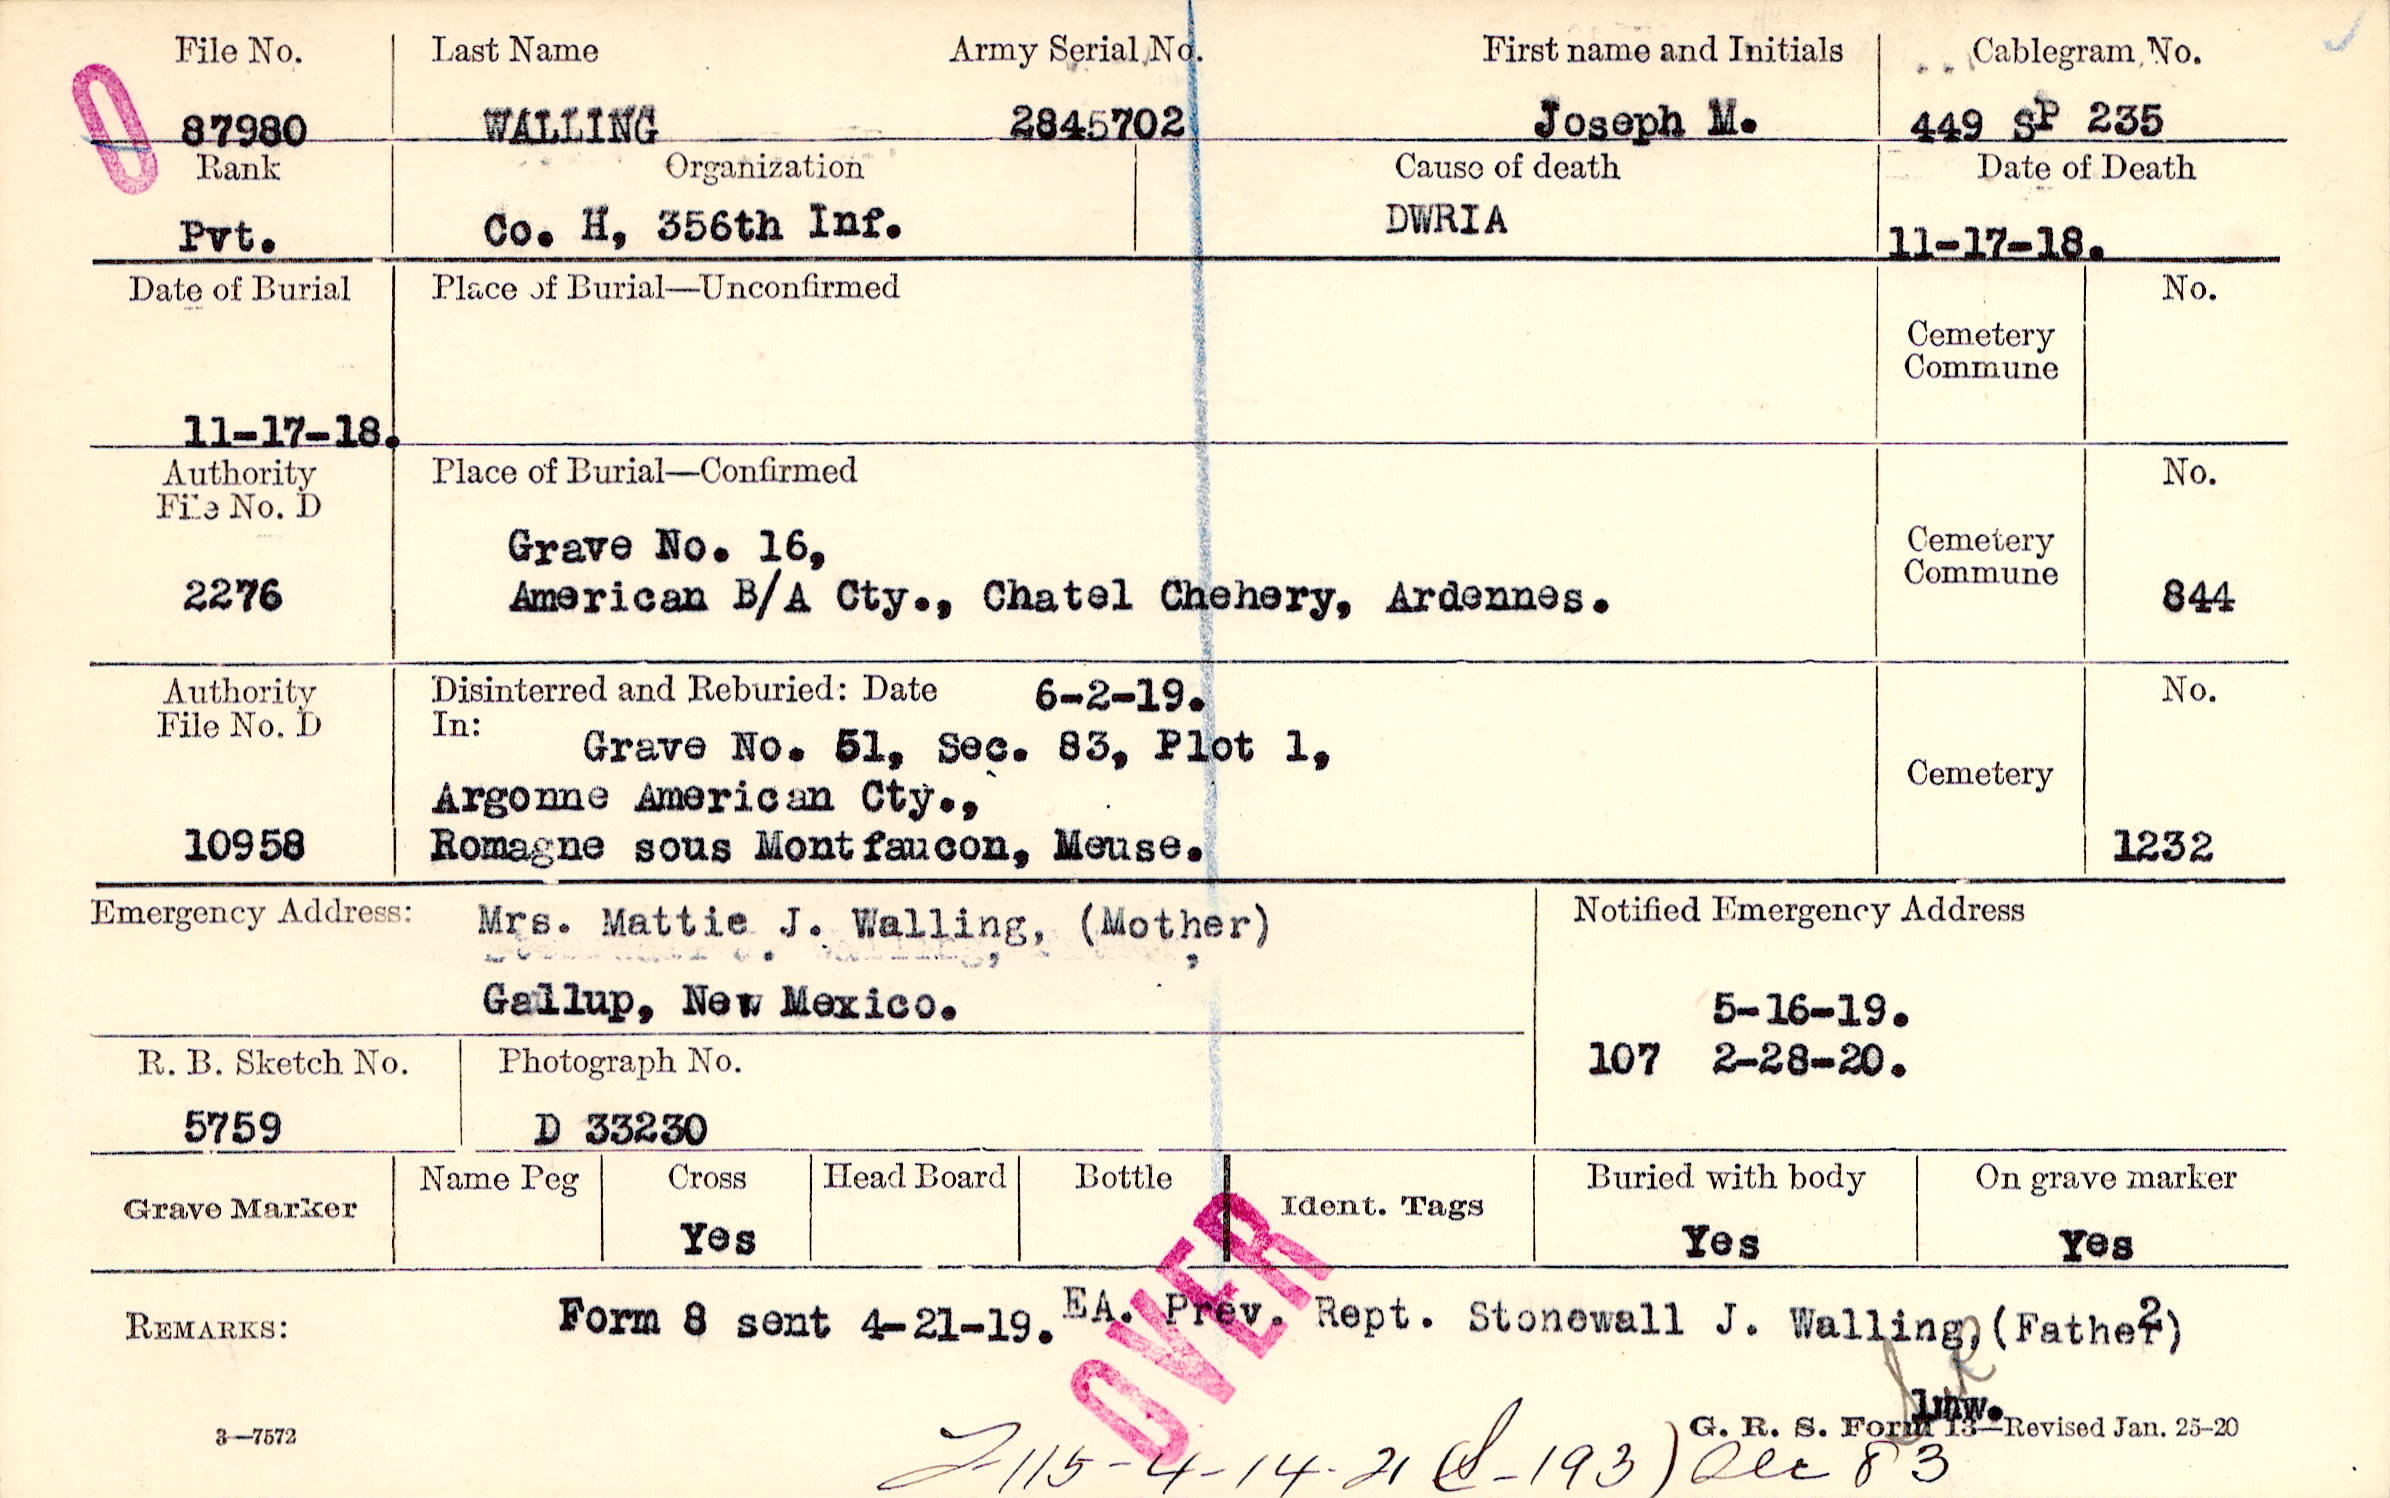 File No. Last Name Army Serial No. First name and Initials Cablegram No.
O 87980 WALLING 2845702 Joseph M. 449 SP 235
Rank Organization Cause of death Date of Death
Pvt. Co. H, 356th Inf. DWRIA 11-17-18.
Date of Burial Place of Burial—Unconfirmed No.
Cemetery
Commune
11-17-18.
Authority Place of Burial—Confirmed No.
File No. D
Grave No. 16, Cemetery
2276 American B/A Cty., Chatel Chehery, Ardennes. Commune 844
Authority Disinterred and Reburied: Date 6-2-19. No.
File No. D In:
Grave No. 51, Sec. 83, Plot 1,
Argonne American Cty., Cemetery
10958 Romagne sous Montfaucon, Meuse. 1232
Emergency Address: Mrs. Mattie J. Walling, (Mother) Notified Emergency Address
Gallup, New Mexico. 5-16-19.
R. B. Sketch No. Photograph No. 107 2-28-20.
5759 D 33230
Grave Marker Name Peg Cross Head Board Bottle Ident. Tags Buried with body On grave marker
Yes Yes Yes
OVER
REMARKS: Form 8 sent 4-21-19. EA. Prev. Rept. Stonewall J. Walling, (Father) 2
lmw.
3—7572 G. R. S. Form 13—Revised Jan. 25-20
115-4-14-21 (S-193) Sec 83